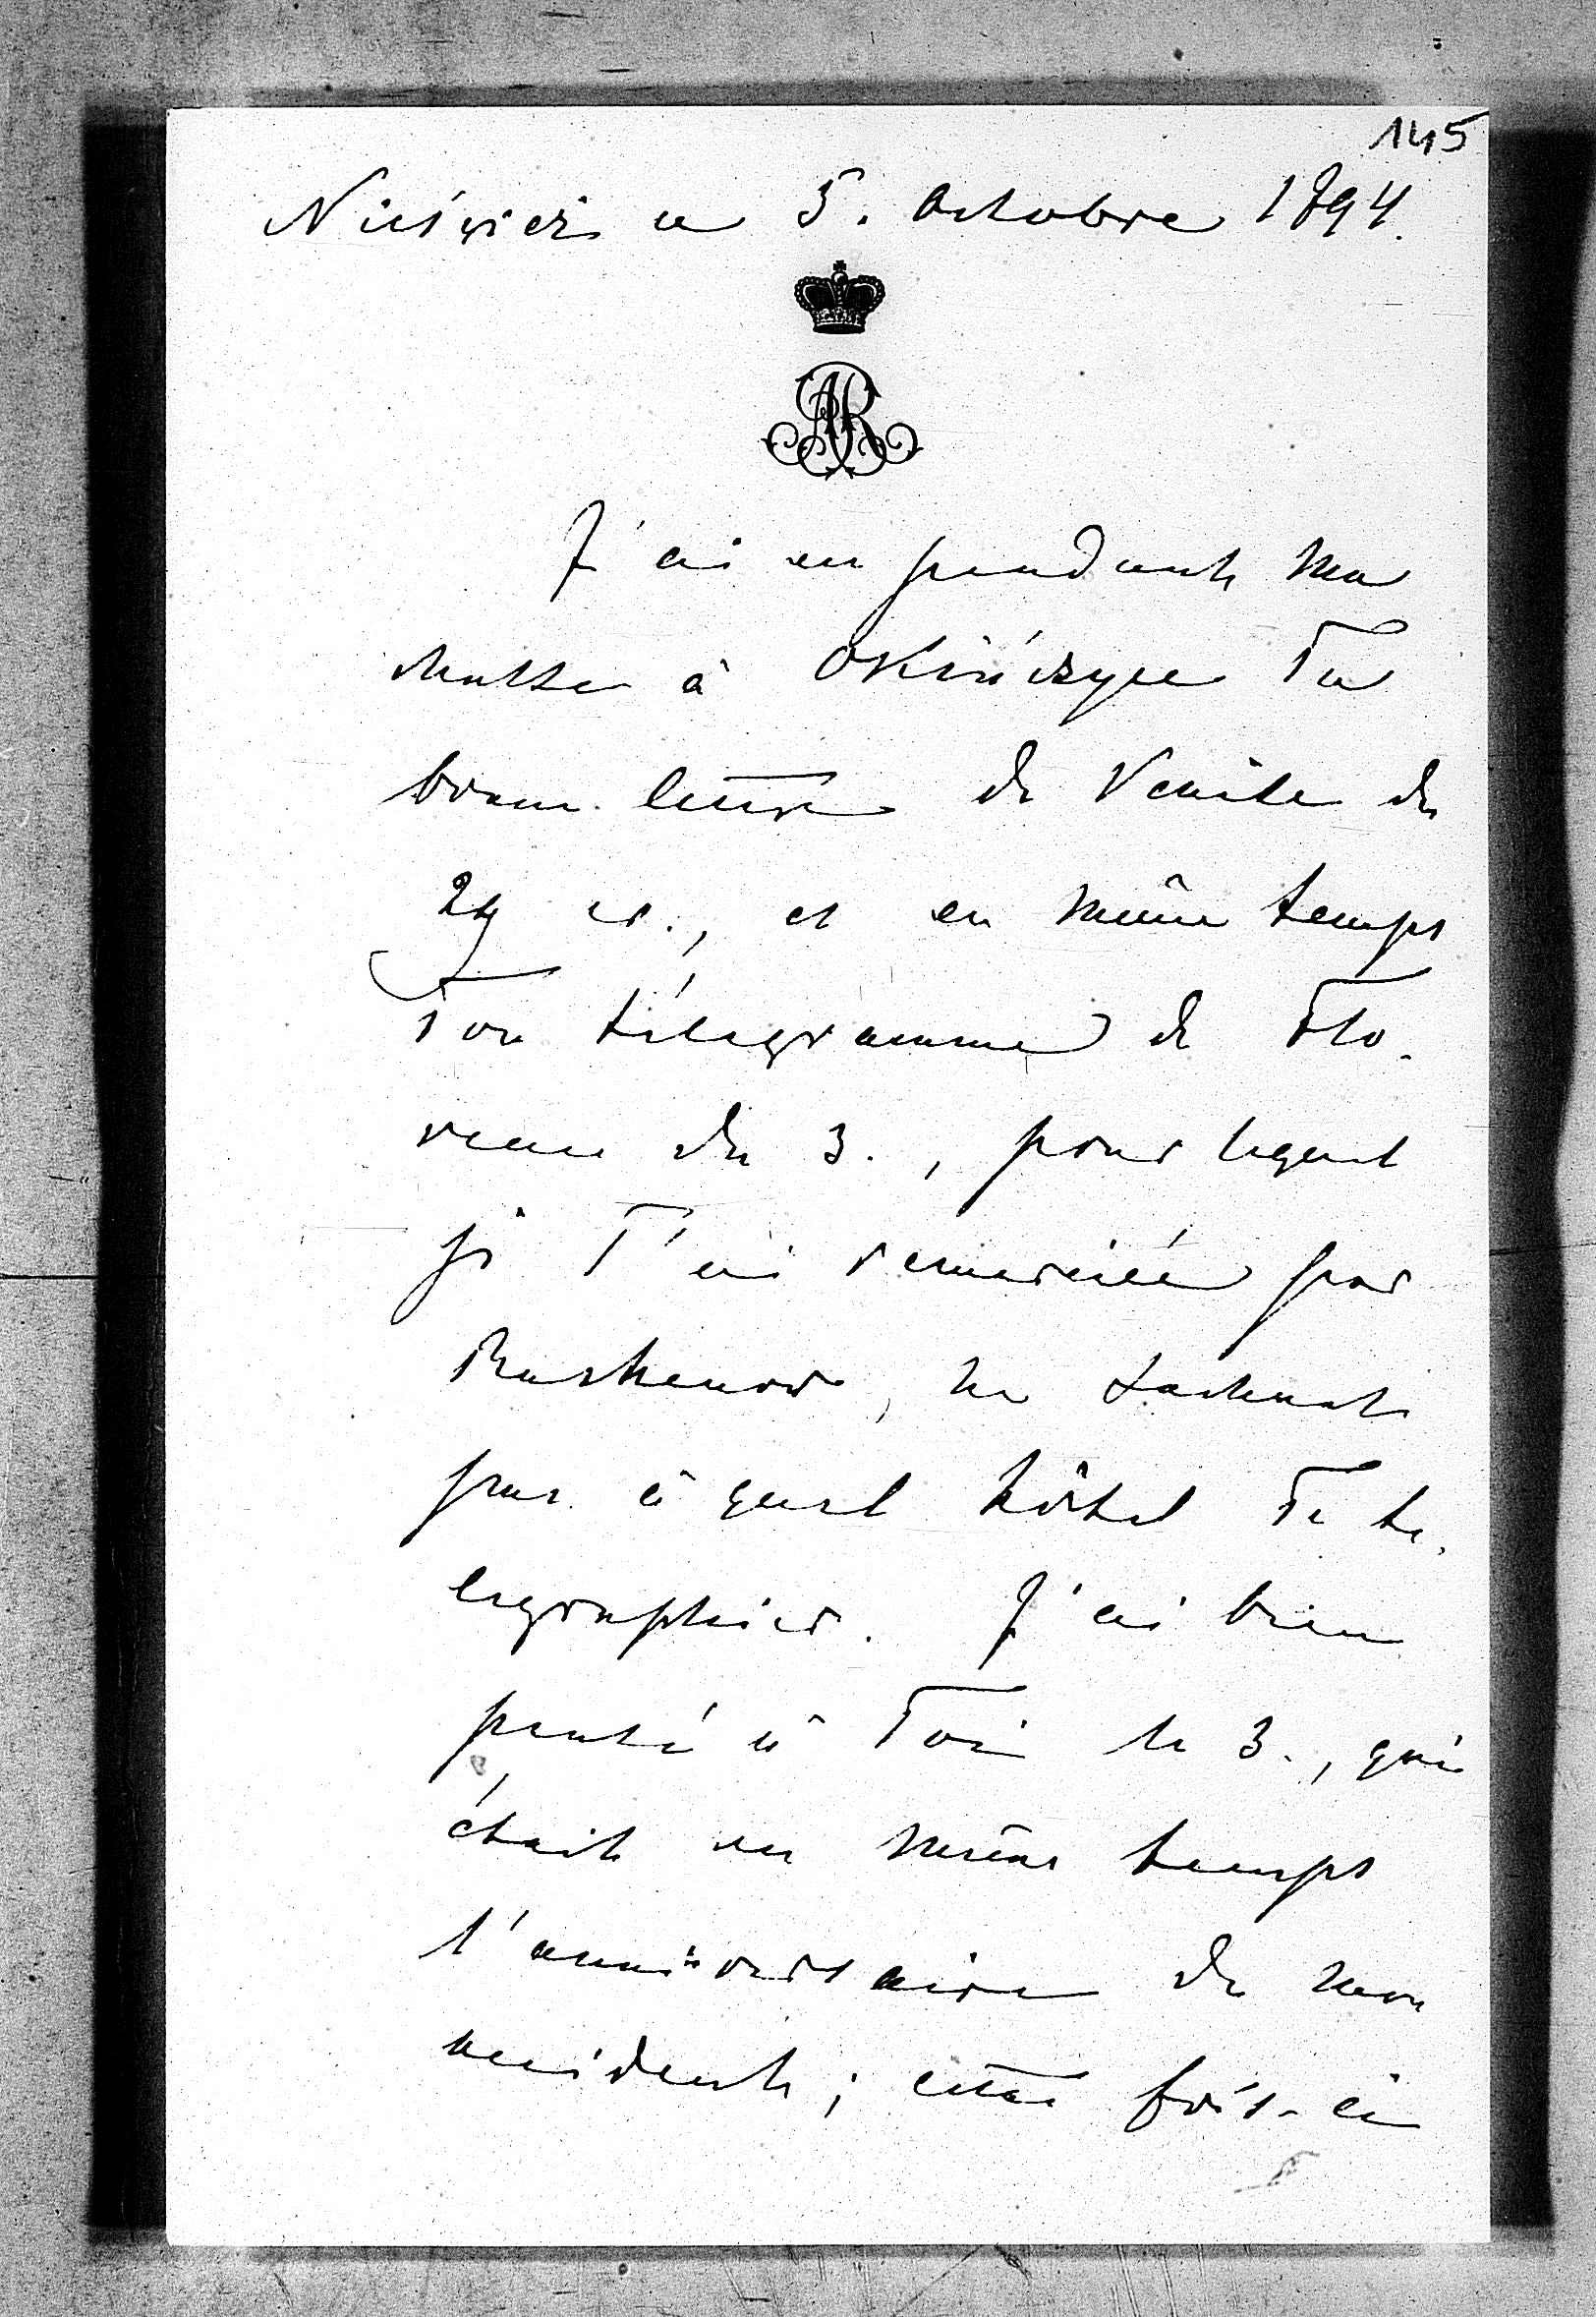 145
Nieśwież ce 5. Octobre 1894.
AR
J'ai eu pendant ma
chasse à Okińczyce Ta
bonne lettre de Venise du
29 et en même temps
Ton télégramme de Flo-
rence du 3., pour lequel
je T'ai remerciée par
ne sachant
pas à quel hôtel Te te-
legraphier. J'ai bien
pensé à Toi le 3., qui
était en même temps
l'anniversaire de mon
accident; cette fois-ci